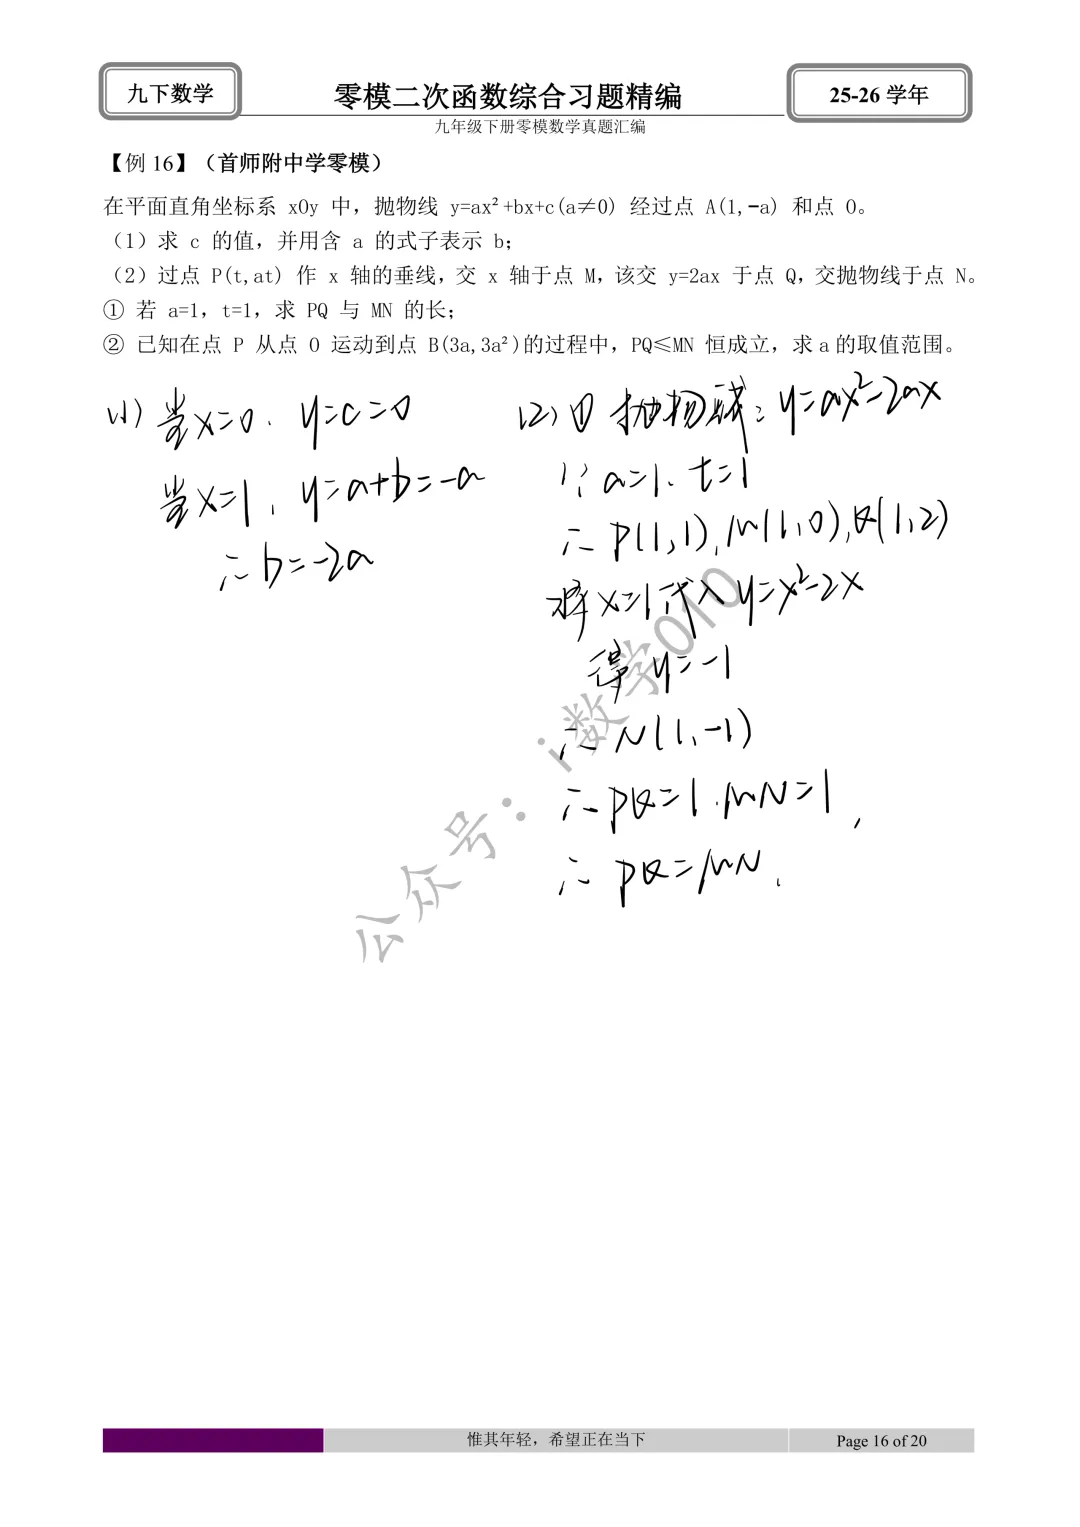 九下数学
零模二次函数综合习题精编
25-26 学年
九年级下册零模数学真题汇编
【例 16】（首师附中学零模）
在平面直角坐标系 xOy 中，抛物线 y=ax²+bx+c(a≠0) 经过点 A(1,-a) 和点 O。
（1）求 c 的值，并用含 a 的式子表示 b；
（2）过点 P(t,at) 作 x 轴的垂线，交 x 轴于点 M，该交 y=2ax 于点 Q，交抛物线于点 N。
① 若 a=1，t=1，求 PQ 与 MN 的长；
② 已知在点 P 从点 O 运动到点 B(3a,3a²)的过程中，PQ≤MN 恒成立，求 a 的取值范围。
(1) 当x=0，y=c=0
当x=1，y=a+b=-a
∴b=-2a
(2) ① 抛物线：y=ax²-2ax
∵a=1，t=1
∴P(1,1)，M(1,0)，Q(1,2)
将x=1代入y=x²-2x
得y=-1
∴N(1,-1)
∴PQ=1，MN=1，
∴PQ=MN．
公众号：i数学010
惟其年轻，希望正在当下
Page 16 of 20